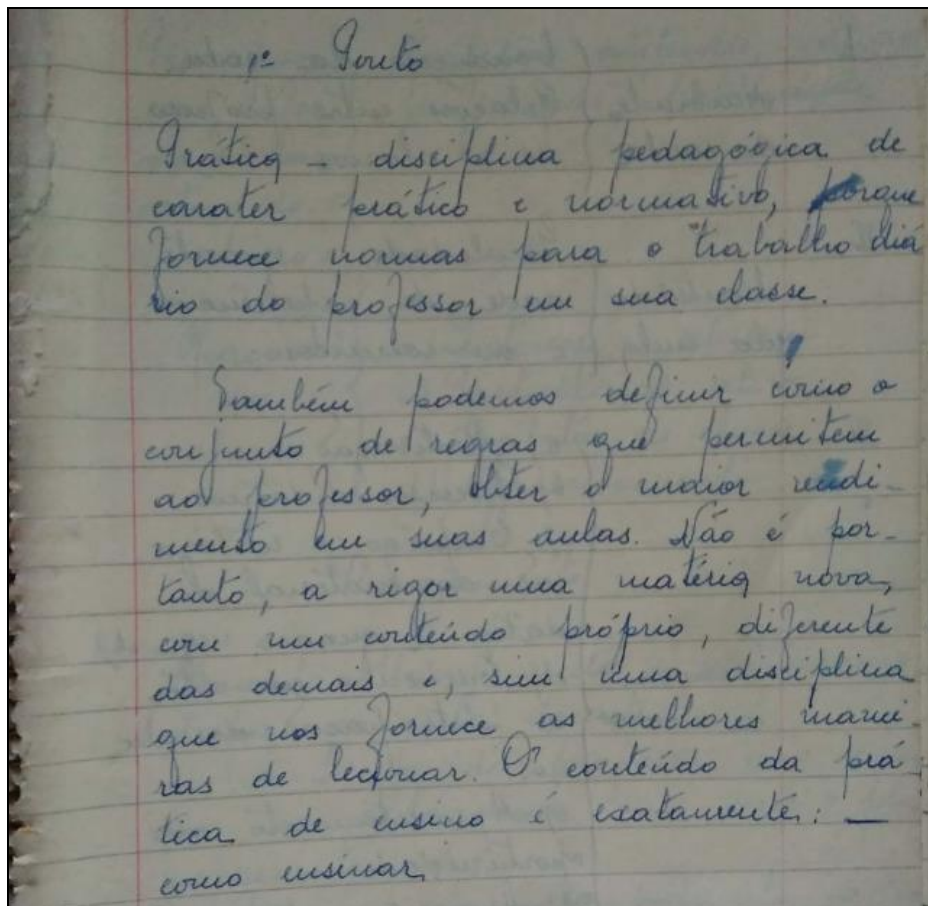 1º Ponto
Prática - disciplina pedagógica de
carater prático e normativo, porque
fornece normas para o trabalho diá
rio do professor em sua classe.
Também podemos definir como o
conjunto de regras que permitem
ao professor, obter o maior rendi-
mento em suas aulas. Não é por-
tanto, a rigor uma matéria nova,
com um conteúdo próprio, diferente
das demais e, sim uma disciplina
que nos fornece as melhores manei-
ras de lecionar. O conteúdo da prá
tica de ensino é exatamente: —
como ensinar.